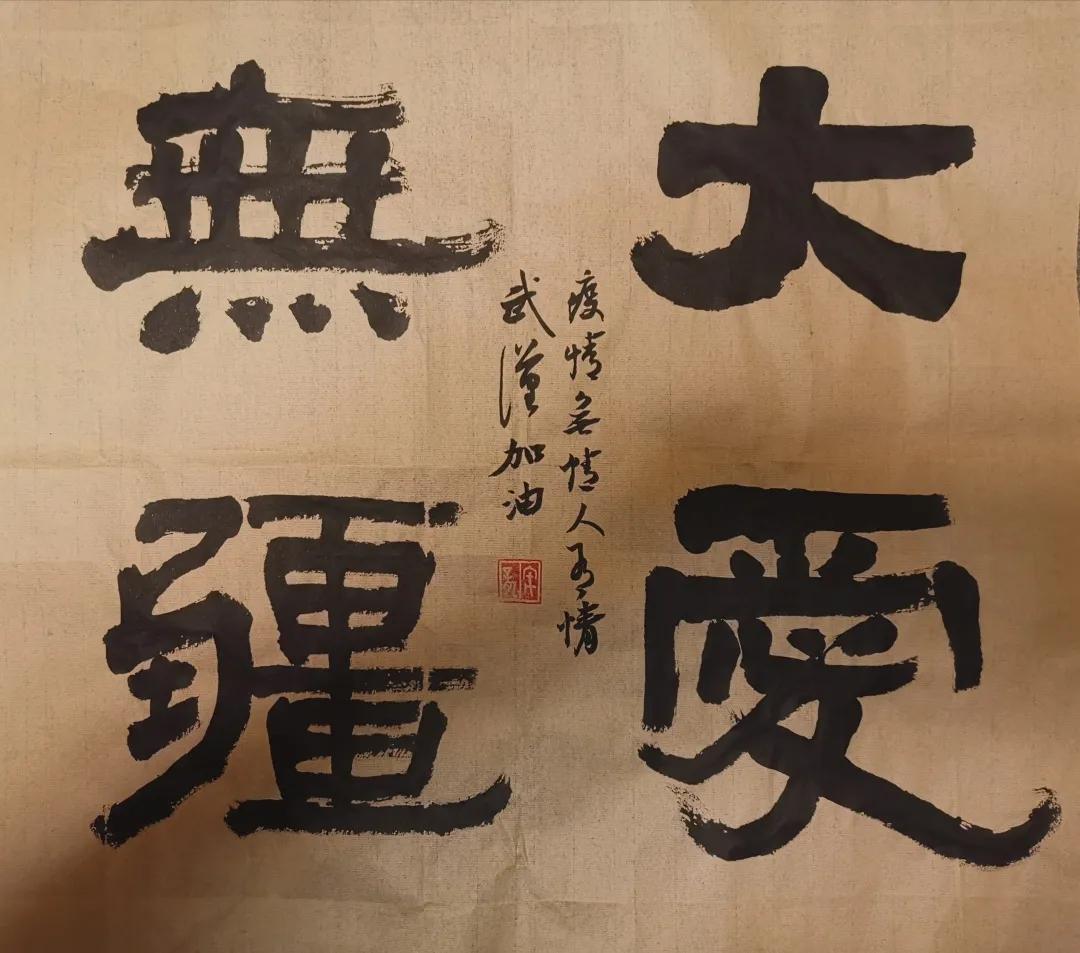 大愛
無疆
疫情無情人有情
武漢加油